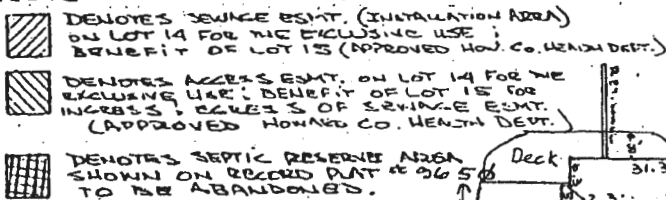 DENOTES SEWAGE ESMT. (INSTALLATION AREA)
ON LOT 14 FOR THE EXCLUSIVE USE ;
BENEFIT OF LOT 15 (APPROVED HOW. CO. HEALTH DEPT.)
DENOTES ACCESS ESMT. ON LOT 14 FOR THE
EXCLUSIVE USE ; BENEFIT OF LOT 15 FOR
INGRESS ; EGRESS OF SEWAGE ESMT.
(APPROVED HOWARD CO. HEALTH DEPT.)
DENOTES SEPTIC RESERVE AREA
SHOWN ON RECORD PLAT # 9650
TO BE ABANDONED.
Deck
31.3